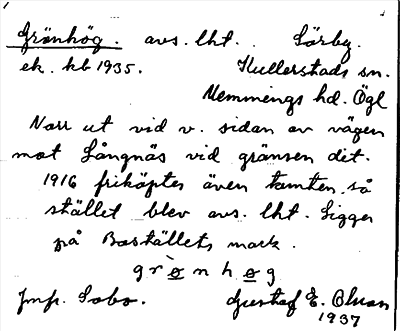 Grönhög. avs. lht. Sörby.
ek. kb 1935. Kullerstads sn.
Memmings hd. Ögl
Norr ut vid v. sidan av vägen
mot Långnäs vid gränsen dit.
1916 friköptes även tomten så
stället blev avs. lht. Ligger
på Boställets mark.
grònhøg
Jmf. Sabo. Gustaf E. Olsson
1937